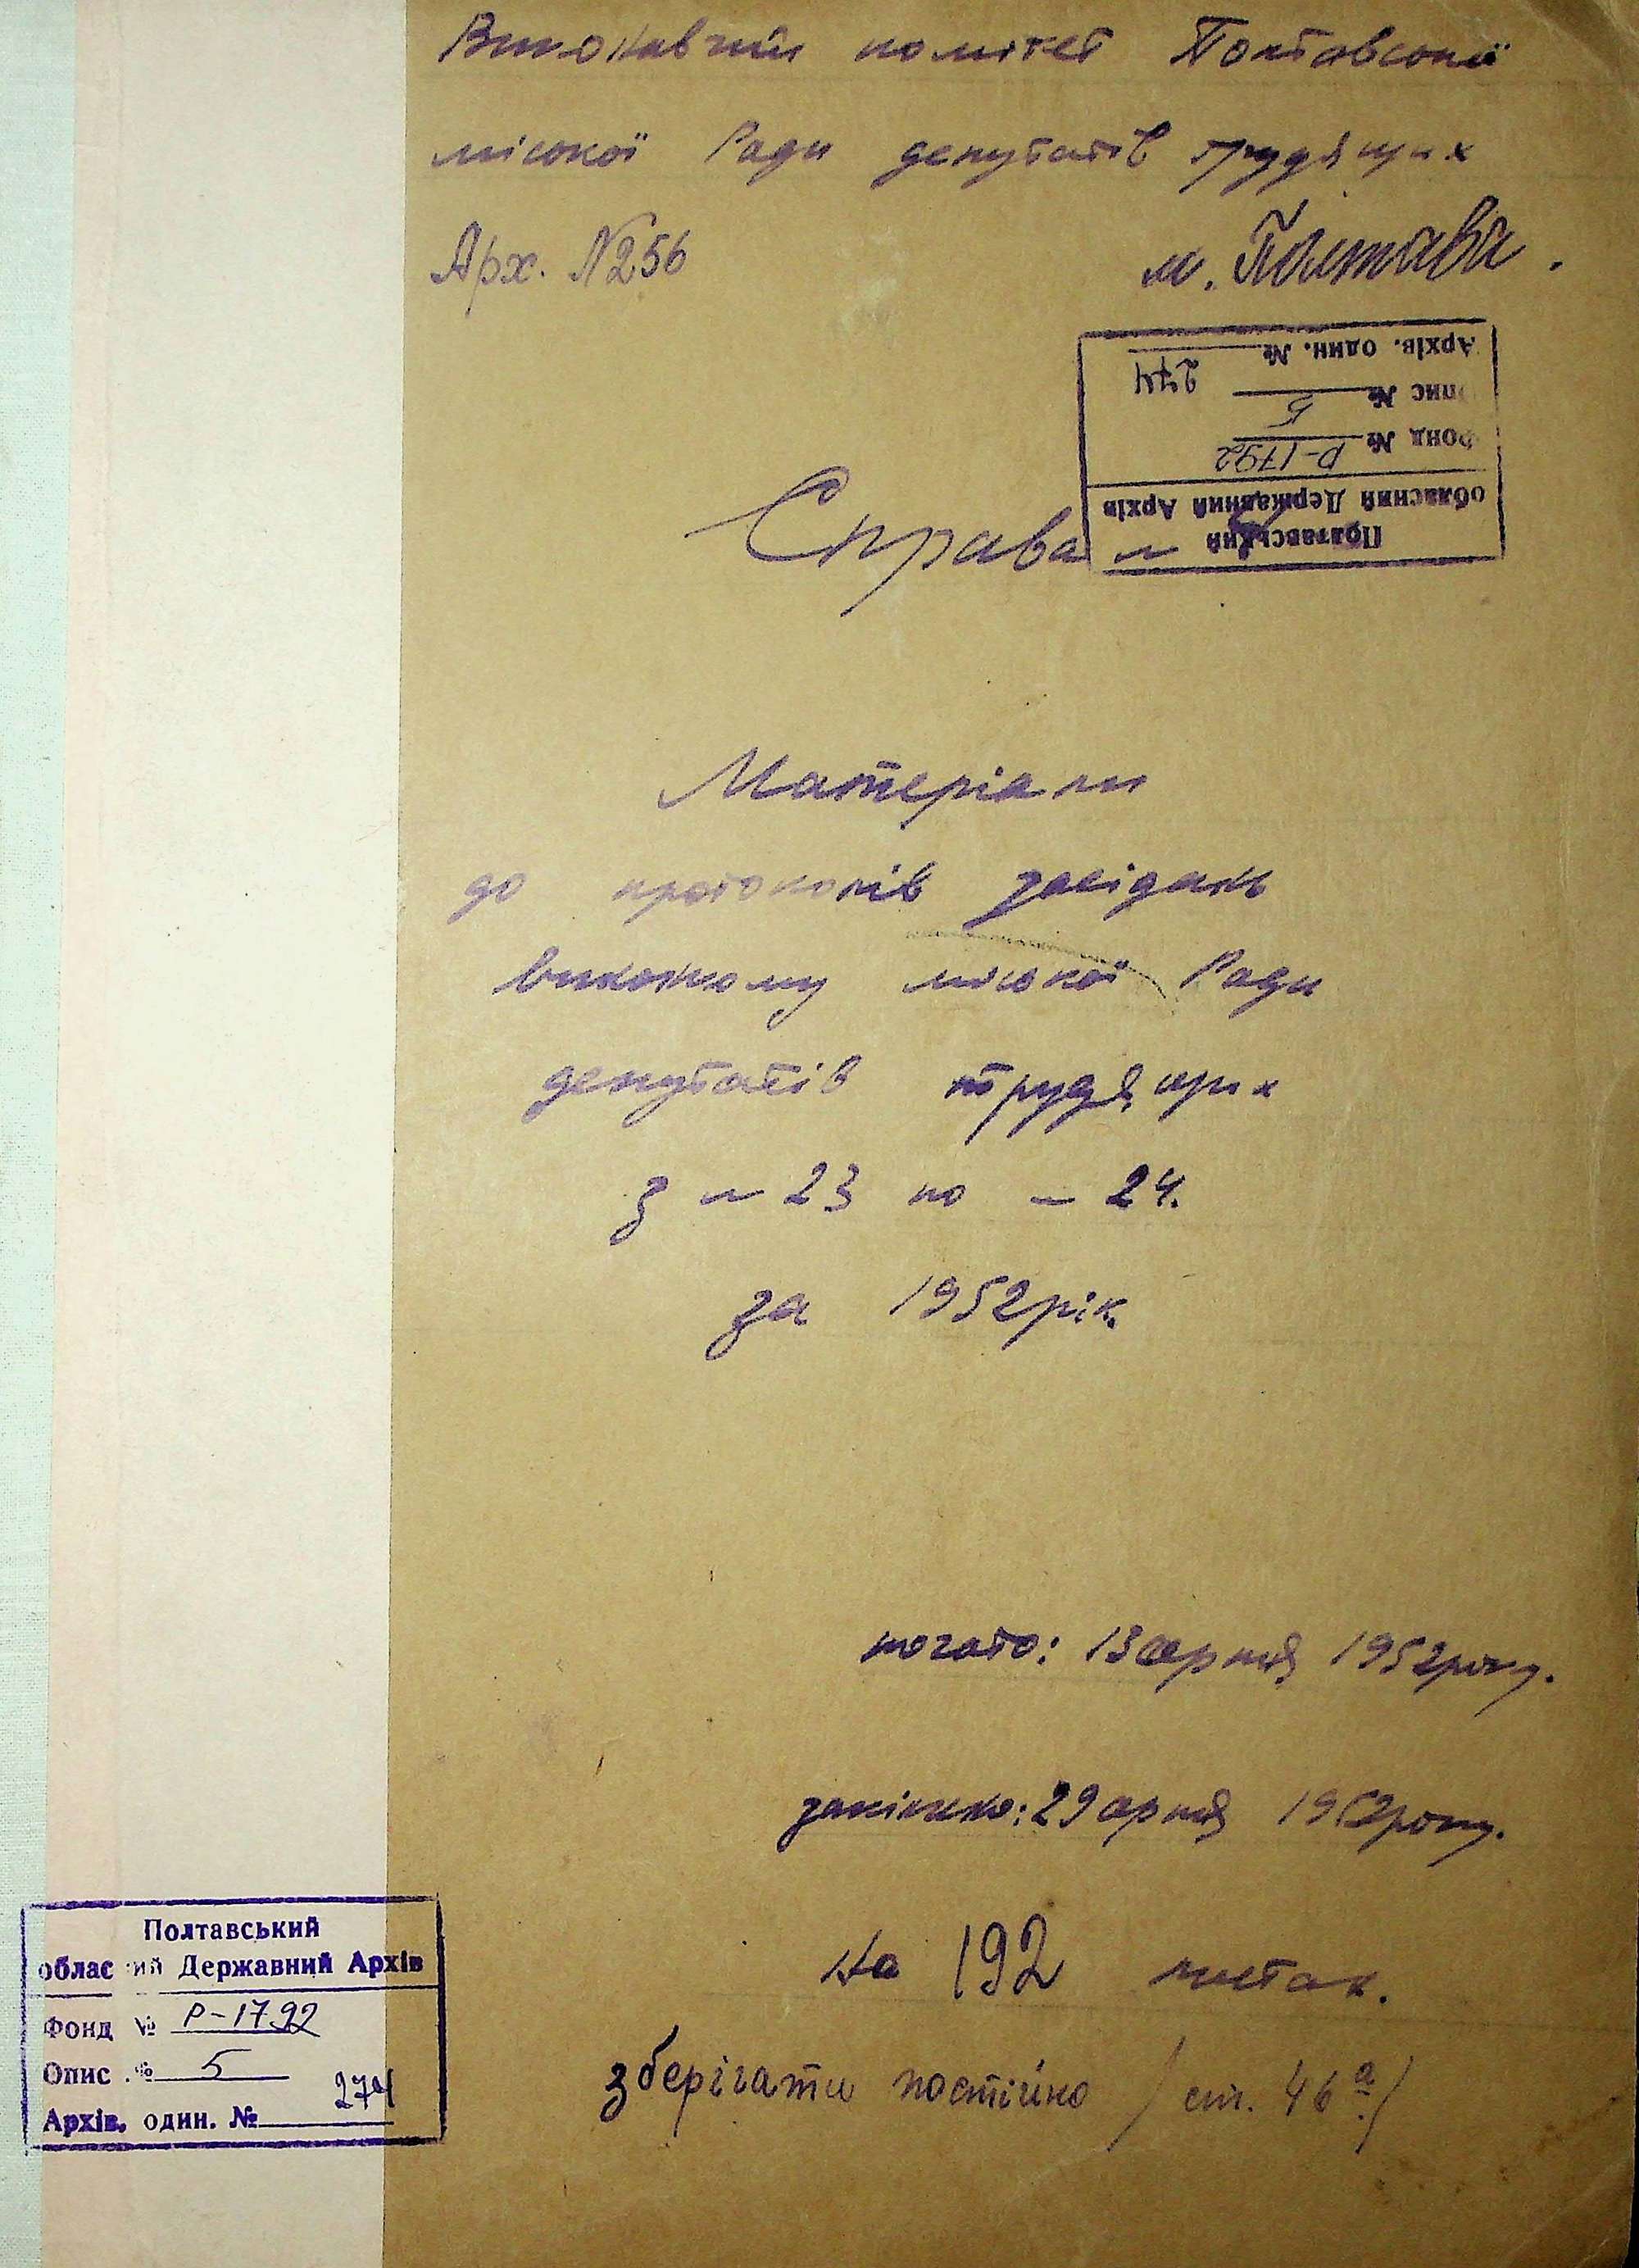 Виконавчий комітет Полтавської
міської Ради депутатів трудящих
Арх. №256
м. Полтава.
Полтавський
обласний Державний Архів
Фонд № Р-1792
Опис № 5
Архів. один. № 274
Справа №
Матеріали
до протоколів засідань
виконкому міської Ради
депутатів трудящих
з № 23 по № 24.
за 1952 рік.
почато: 13 серпня 1952 року.
закінчено: 29 серпня 1952 року.
На 192 листах.
зберігати постійно / ст. 46а/
Полтавський
обласний Державний Архів
Фонд № Р-1792
Опис № 5
Архів. один. № 274